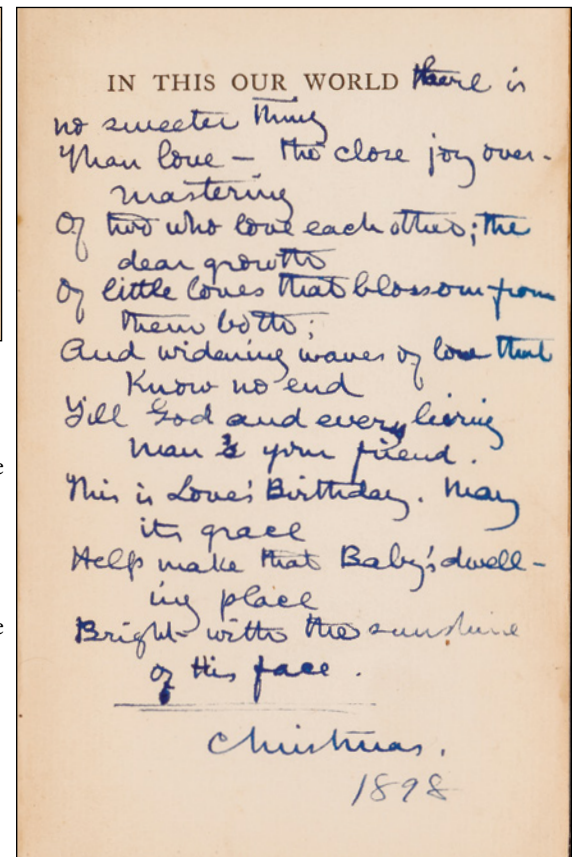 IN THIS OUR WORLD there is
no sweeter thing
Than love — the close joy over-
mastering
Of two who love each other; the
dear growth
Of little loves that blossom from
them both;
And widening waves of love that
Know no end
Till God and every living
man is your friend.
This is Love's Birthday. May
its grace
Help make that Baby's dwell-
ing place
Bright with the sunshine
of His face.
Christmas.
1898
e
e